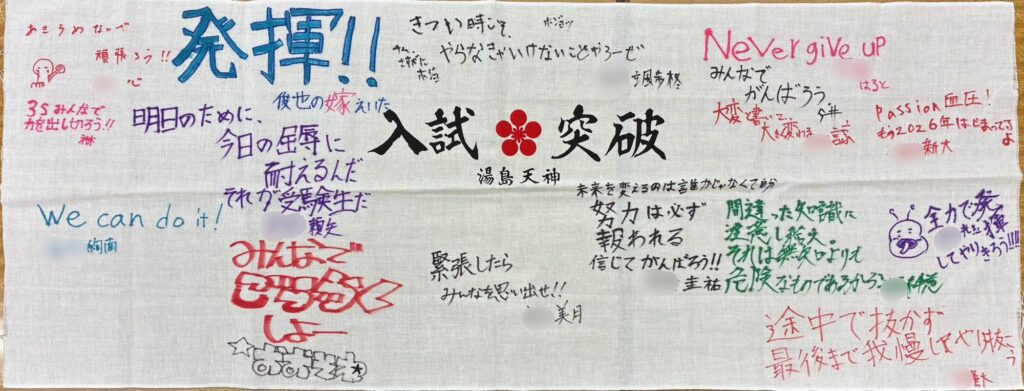 あきらめないで
頑張ろう!!
心
3Sみんなで
力を出し切ろう!!
発揮!!
俊也の嫁えいた
明日のために、
今日の屈辱に
耐えるんだ
それが受験生だ
We can do it!
絢南
みんなで
しよー
きつい時こそ、
やらなきゃいけないことやろーぜ
入試 突破
湯島天神
Never give up
はると
みんなで
がんばろう
大変と書いて、
大きく変われる
passion血圧!
もう2026年はじまってる
よ
新大
未来を変えるのは誰かじゃなくて自分
努力は必ず
報われる
信じてがんばろう!!
圭祐
緊張したら
みんなを思い出せ!!
美月
間違った知識に
注意し給え。
それは無知よりも
危険なものであるから
全力で発揮
してやりきろう!!!
途中で抜かず
最後まで我慢してやり抜こう